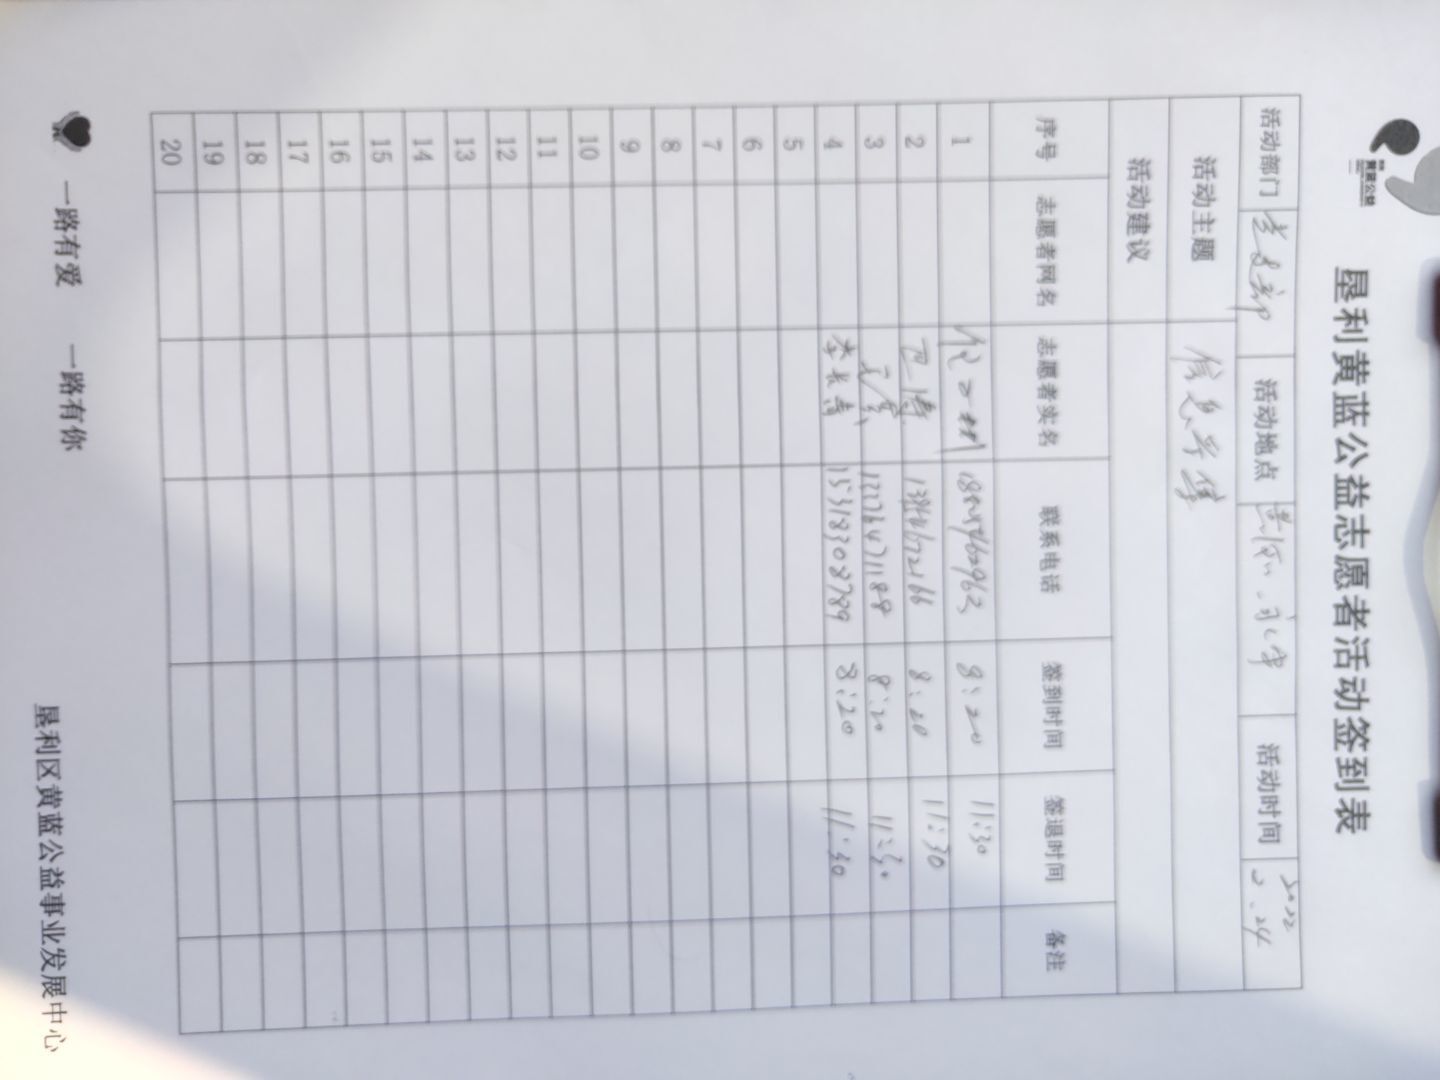 黄蓝公益
垦利黄蓝公益志愿者活动签到表
活动部门 活动地点 活动时间 2022 2.24
活动主题 信息采集
活动建议
序号 志愿者网名 志愿者实名 联系电话 签到时间 签退时间 备注
1 8:20 11:30
2 8:20 11:30
3 8:20 11:30
4 李长青 15318308789 8:20 11:30
5
6
7
8
9
10
11
12
13
14
15
16
17
18
19
20
一路有爱 一路有你 垦利区黄蓝公益事业发展中心